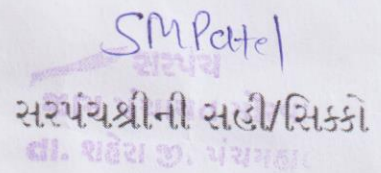 SMPatel
સરપંચ
સરપંચશ્રીની સહી/સિક્કો
તા. શહેરા જી. પંચમહાલ